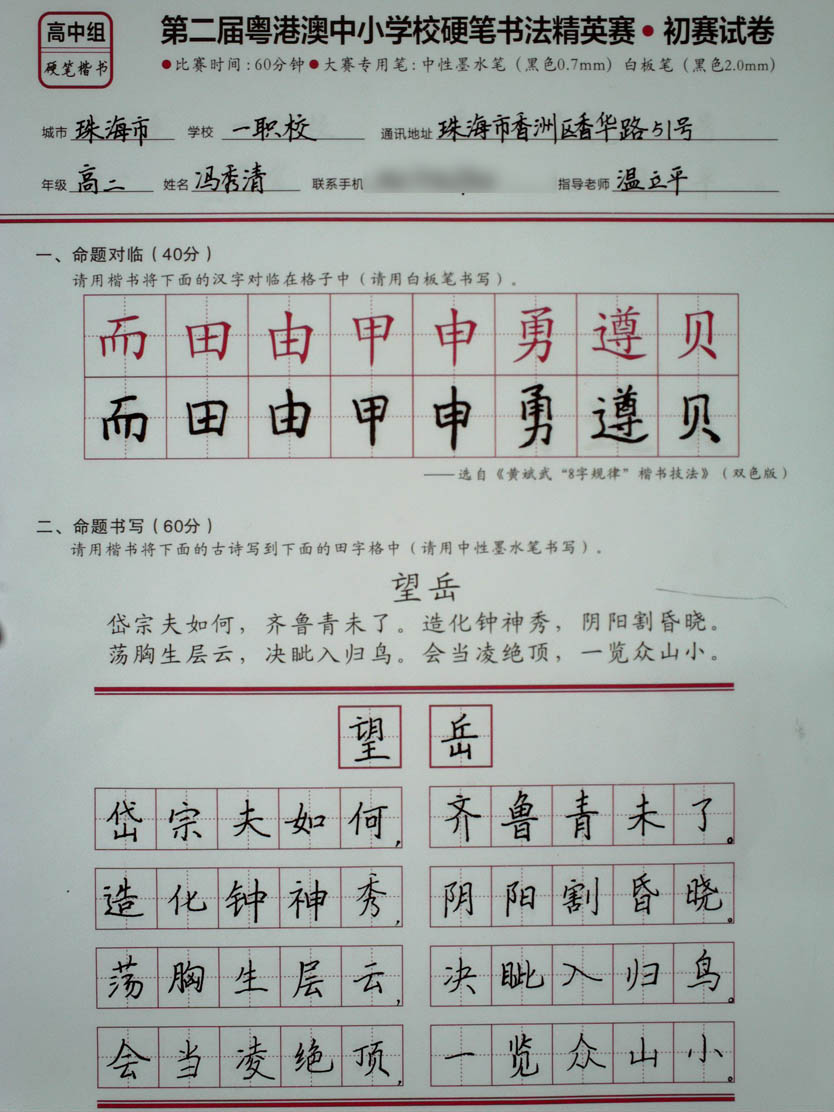 高中组
硬笔楷书
第二届粤港澳中小学校硬笔书法精英赛•初赛试卷
●比赛时间:60分钟●大赛专用笔:中性墨水笔（黑色0.7mm）白板笔（黑色2.0mm）
城市 珠海市 学校 一职校 通讯地址 珠海市香洲区香华路51号
年级 高二 姓名 冯秀清 联系手机 指导老师 温立平
一、命题对临（40分）
请用楷书将下面的汉字对临在格子中（请用白板笔书写）。
而田由甲申勇遵贝
而田由甲申勇遵贝
——选自《黄斌武“8字规律”楷书技法》（双色版）
二、命题书写（60分）
请用楷书将下面的古诗写到下面的田字格中（请用中性墨水笔书写）。
望岳
岱宗夫如何，齐鲁青未了。造化钟神秀，阴阳割昏晓。
荡胸生层云，决眦入归鸟。会当凌绝顶，一览众山小。
望岳
岱宗夫如何，齐鲁青未了。
造化钟神秀，阴阳割昏晓。
荡胸生层云，决眦入归鸟。
会当凌绝顶，一览众山小。